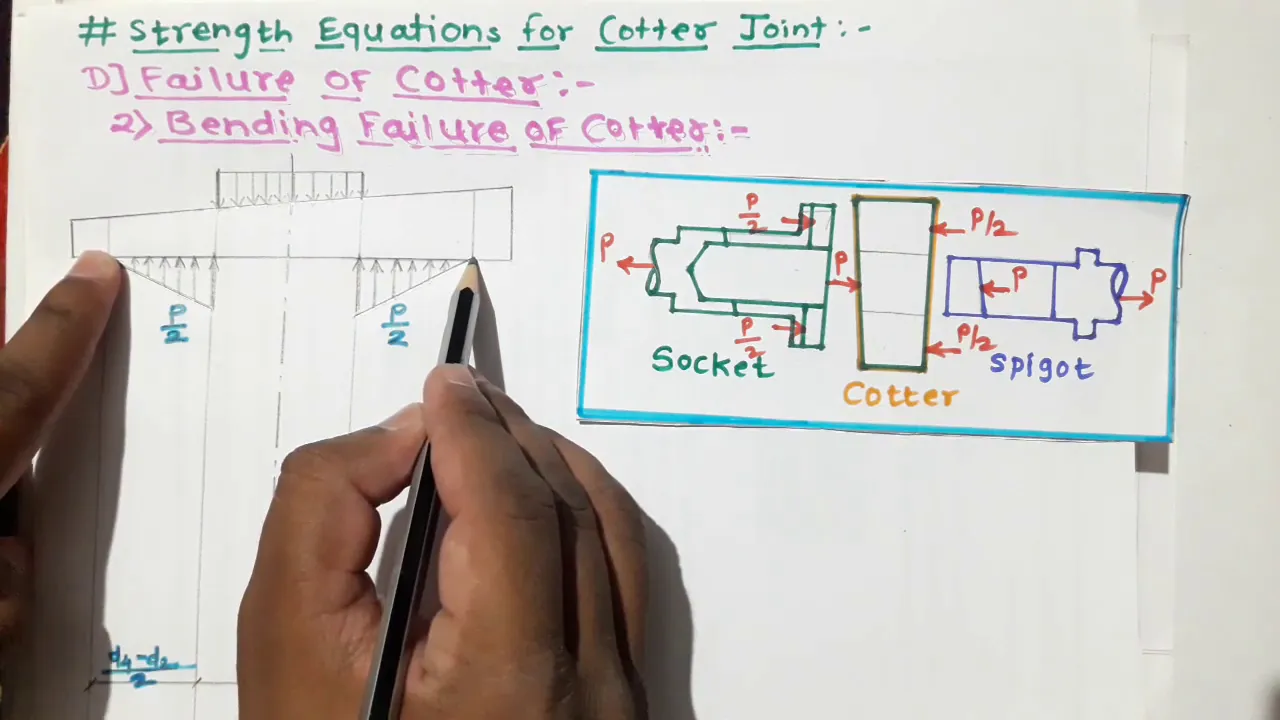 # Strength Equations for Cotter Joint:-
D] Failure of Cotter:-
2) Bending Failure of Cotter:-
P/2
P/2
d4-d2/2
P/2
P
P
P/2
P/2
P
P/2
P
Socket
Cotter
Spigot